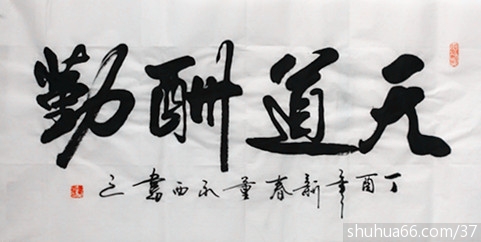 天道酬勤
丁酉年新春董永西書
shuhua66.com/37